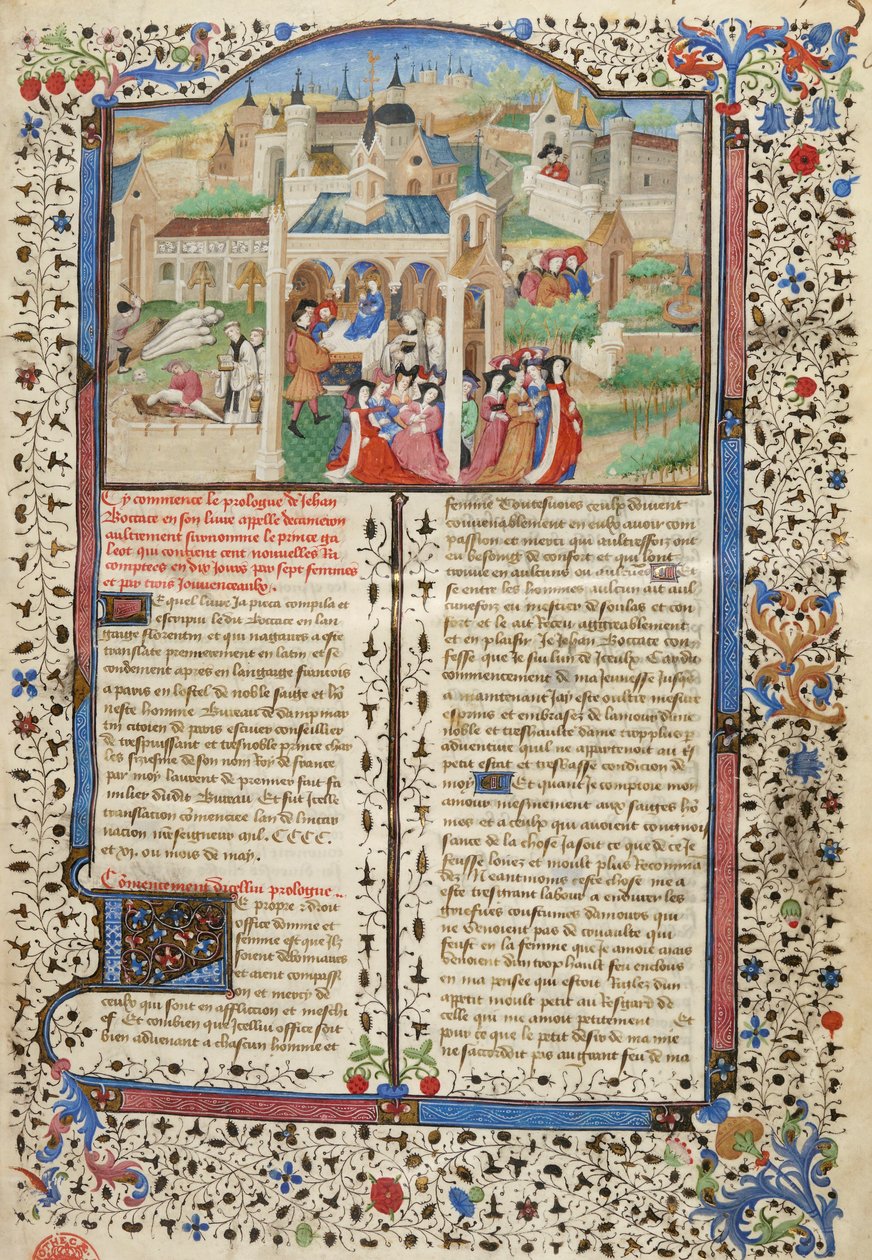 Cy commence le prologue de Jehan
Boccace en son livre appelle decameron
aultrement surnomme le prince ga
leot qui contient cent nouvelles Ra
comptees en dix jours par sept femmes
et par trois Jouvenceaulx.
Lequel livre Ja pieca compila et
escripvi ledit Boccace en lan
gaige florentin et qui nagaires a este
translate premierement en latin et se
condement apres en langaige francois
a paris en lostel de noble saige et ho
neste homme Bureau de dampmar
tin citoien de paris escuier conseillier
de trespuissant et tresnoble prince char
les sixiesme de son nom Roy de france
par moy laurent de premier fait fa
milier dudit Bureau Et fut Icelle
translation commencee lan de lincar
nacion nre seigneur mil. CCCC.
et XI. ou mois de may.
Comencement dicellui prologue.
Le propre & droit
office domme et
femme est que Ilz
soient debonnaires
et aient compassi
on et mercy de
ceulx qui sont en affliction et meschi
ef Et combien que Icellui office soit
bien advenant a chascun homme et
femme Toutesvoies ceulx doivent
convenablement en eulx avoir com
passion et merci qui aultreffois ont
eu besoing de confort et qui lont
trouve en aulcuns ou aulcunes Et
se entre les hommes aulcun ait aul
cuneffois eu mestier de soulas et con
fort et le ait Receu aggreablement
et en plaisir Je Jehan Boccace con
fesse que Je sui lun de Iceulx Car du
commencement de ma jeunesse Jusqs
a maintenant Jay este oultre mesure
esprins et embrasez de lamour dune
noble et treshaulte dame trop plus p
adventure quil ne appartenoit au
petit estat et tresbasse condicion de
moy Et quant Je comptoie mon
amour mesmement aux saiges ho
mes et a ceulx qui avoient congnois
sance de la chose Ja soit ce que de ce Je
feusse louez et moult plus Recomma
dez Neantmoins ceste chose me a
este tresgrant labour a endurer les
griefves coustumes damours qui
ne venoient pas de cruaulte qui
feust en la femme que Je amoie mais
venoient dun trop hault feu enclous
en ma pensee qui estoit Riglez dun
appetit moult petit au Resgard de
celle qui me amoit petitement Et
pour ce que le petit desir de mamie
ne saccordoit pas au grant feu de ma